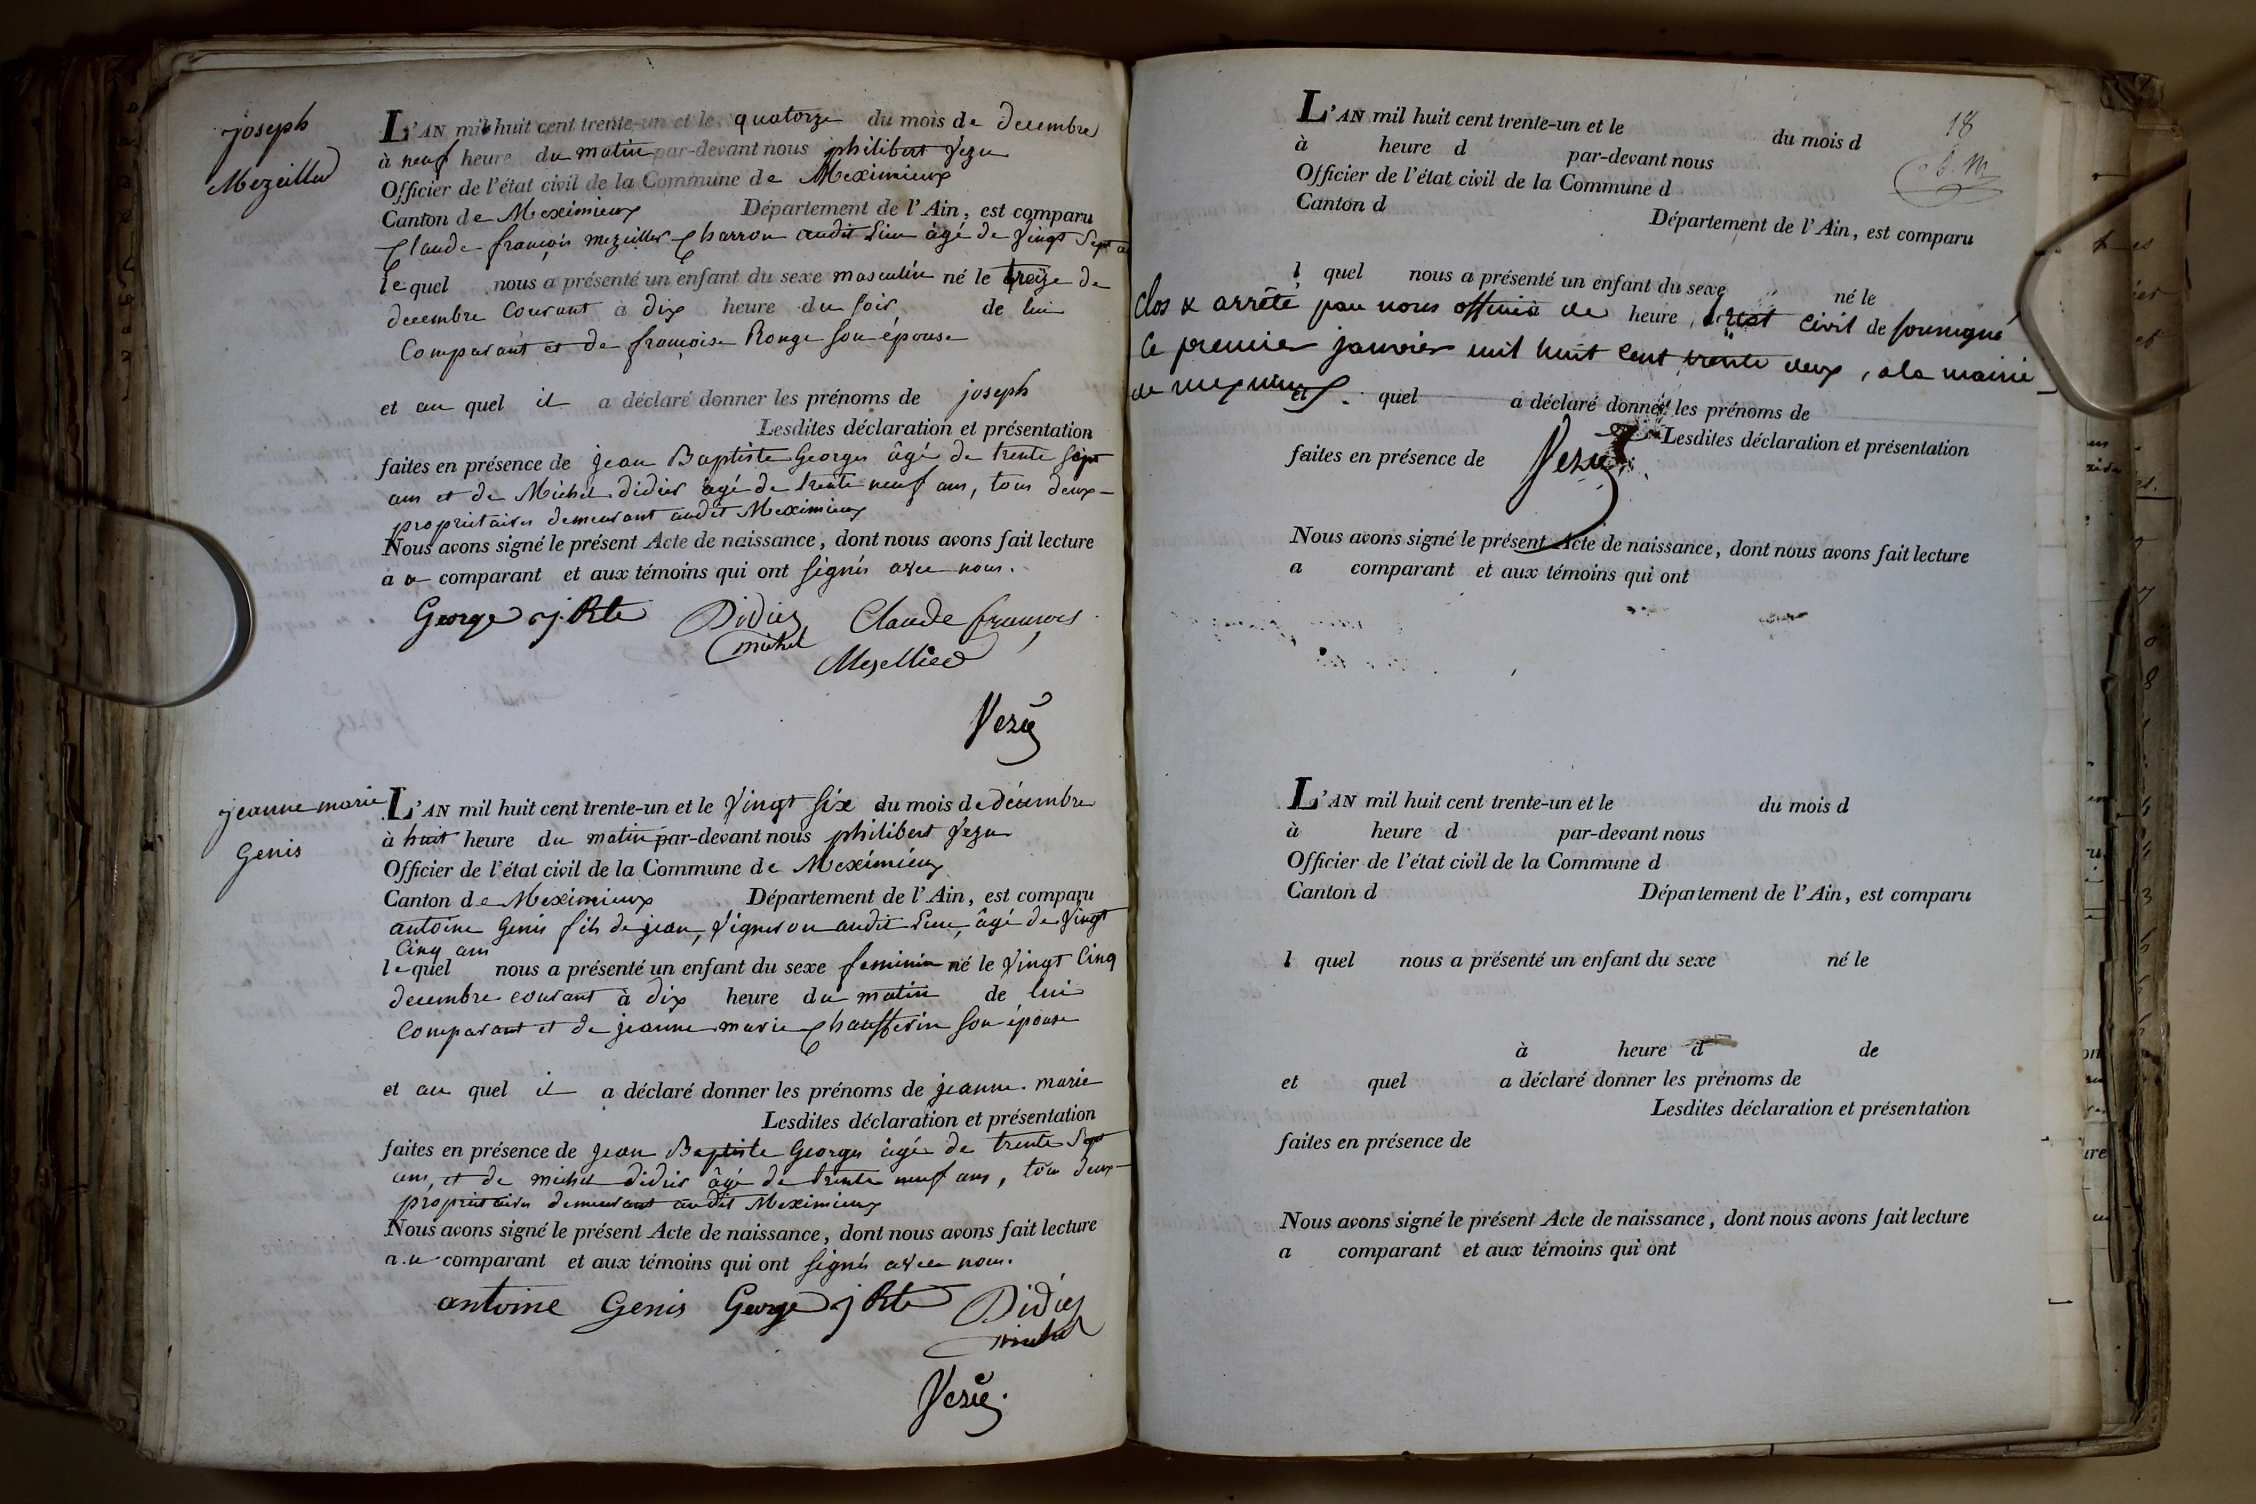 joseph
Mezeillier
L'AN mil huit cent trente-un et le quatorze du mois de decembre
à neuf heure du matin par-devant nous philibert Vezu
Officier de l'état civil de la Commune de Meximieux
Canton de Meximieux Département de l'Ain, est comparu
Claude françois mezeillier Charron audit Lieu âgé de Vingt Sept ans
lequel nous a présenté un enfant du sexe masculin né le treize de
decembre Courant à dix heure du soir de lui
Comparant et de françoise Ronge son épouse
et au quel il a déclaré donner les prénoms de joseph
Lesdites déclaration et présentation
faites en présence de jean Baptiste Georges âgé de trente Sept
ans et de Michel didier âgé de trente neuf ans, tous deux
proprietaires demeurant audit Meximieux
Nous avons signé le présent Acte de naissance, dont nous avons fait lecture
au comparant et aux témoins qui ont signés avec nous.
George j. Bte Didier Claude françois
michel Mesellier
Vezu
jeanne marie
Genis
L'AN mil huit cent trente-un et le Vingt Six du mois de décembre
à huit heure du matin par-devant nous philibert Vezu
Officier de l'état civil de la Commune de Meximieux
Canton de Meximieux Département de l'Ain, est comparu
antoine Genis fils de jean, Vigneron audit Lieu, âgé de Vingt
Cinq ans
lequel nous a présenté un enfant du sexe feminin né le Vingt Cinq
decembre courant à dix heure du matin de lui
Comparant et de jeanne marie Chaufferin son épouse
et au quel il a déclaré donner les prénoms de jeanne marie
Lesdites déclaration et présentation
faites en présence de jean Baptiste Georges âgé de trente Sept
ans, et de michel didier âgé de trente neuf ans, tous deux
proprietaires demeurant audit Meximieux
Nous avons signé le présent Acte de naissance, dont nous avons fait lecture
au comparant et aux témoins qui ont signés avec nous.
antoine Genis George j Bte Didier
michel
Vezu
18
L'AN mil huit cent trente-un et le du mois d
à heure d par-devant nous
Officier de l'état civil de la Commune d
Canton d Département de l'Ain, est comparu
l quel nous a présenté un enfant du sexe né le
Clos & arrêté par nous officier de heure l'état civil de soussigné
le premier janvier mil huit cent trente deux, a la mairie
de meximieux
et quel a déclaré donner les prénoms de
Lesdites déclaration et présentation
faites en présence de Vezu
Nous avons signé le présent Acte de naissance, dont nous avons fait lecture
a comparant et aux témoins qui ont
L'AN mil huit cent trente-un et le du mois d
à heure d par-devant nous
Officier de l'état civil de la Commune d
Canton d Département de l'Ain, est comparu
l quel nous a présenté un enfant du sexe né le
à heure d de
et quel a déclaré donner les prénoms de
Lesdites déclaration et présentation
faites en présence de
Nous avons signé le présent Acte de naissance, dont nous avons fait lecture
a comparant et aux témoins qui ont